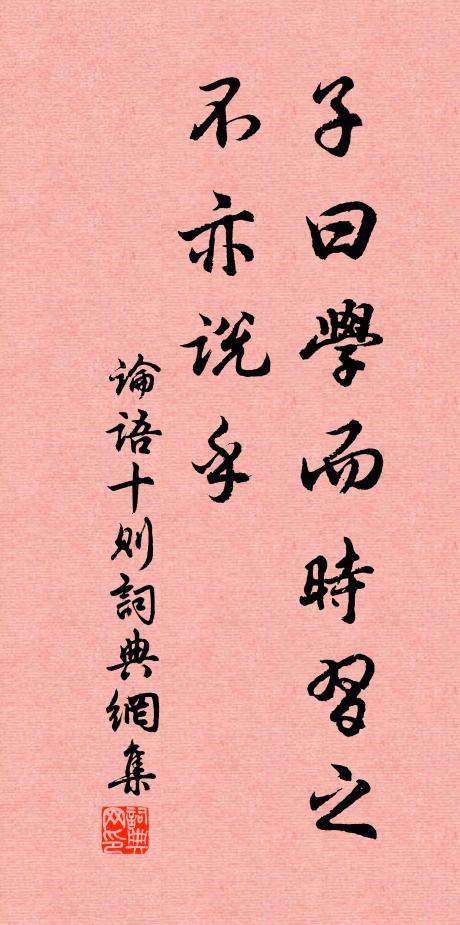 子曰學而時習之
不亦説乎
論語十则詞典網集
詞典网印